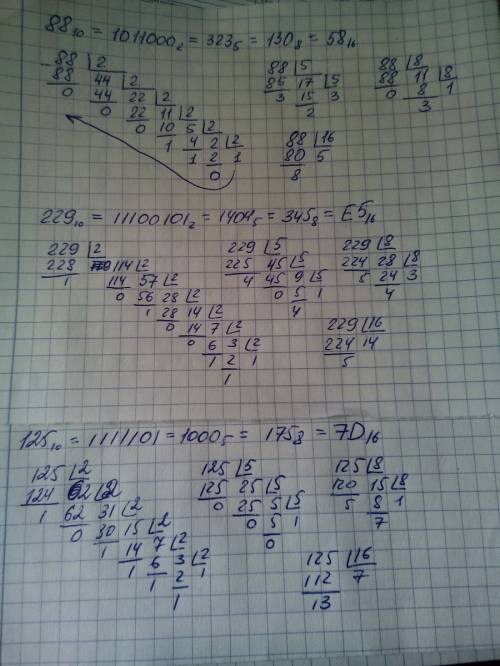 88₁₀ = 1011000₂ = 323₅ = 130₈ = 58₁₆
88 2 88 5 88 8
88 44 2 85 17 5 88 11 8
0 44 22 2 3 15 3 0 8 1
0 22 11 2 2 3
0 10 5 2 88 16
1 4 2 2 80 5
1 2 1 8
0
229₁₀ = 11100101₂ = 1404₅ = 345₈ = E5₁₆
229 2 229 5 229 8
228 114 2 225 45 5 224 28 8
1 114 57 2 4 45 9 5 5 24 3
0 56 28 2 0 5 1 4
1 28 14 2 4
0 14 7 2 229 16
0 6 3 2 224 14
1 2 1 5
1
125₁₀ = 1111101 = 1000₅ = 175₈ = 7D₁₆
125 2 125 5 125 8
124 62 2 125 25 5 120 15 8
1 62 31 2 0 25 5 5 5 8 1
0 30 15 2 0 5 1 7
1 14 7 2 0
1 6 3 2 125 16
1 2 1 112 7
1 13